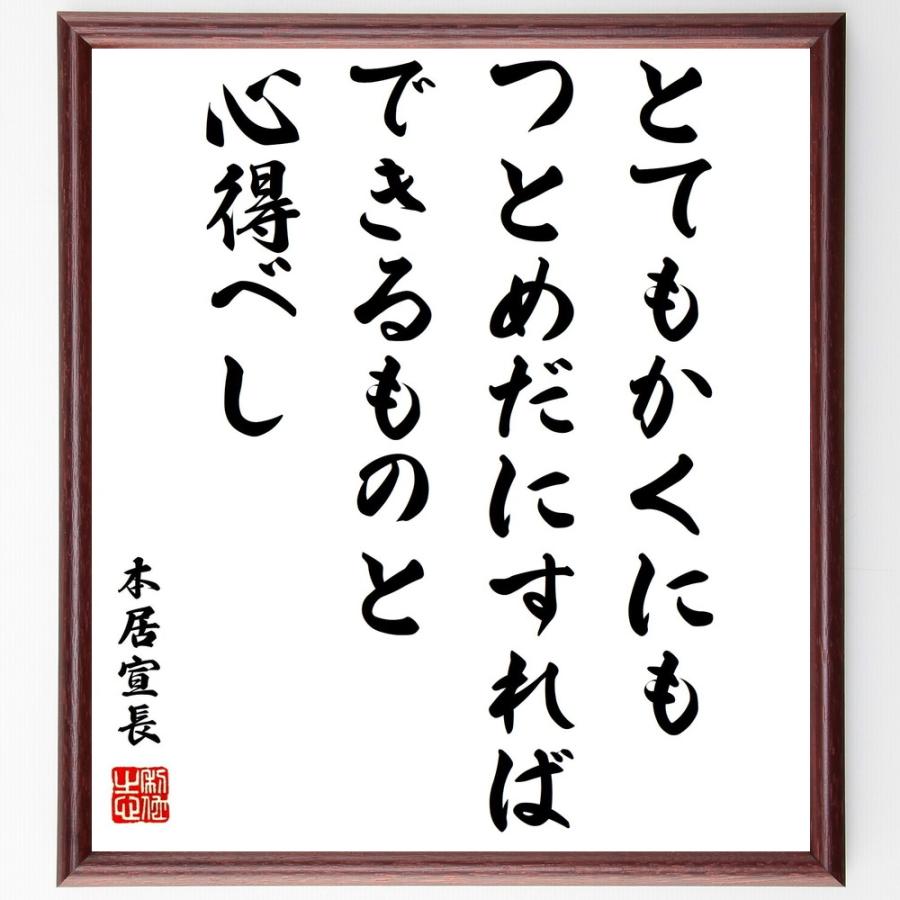 とてもかくにも
つとめだにすれば
できるものと
心得べし
本居宣長